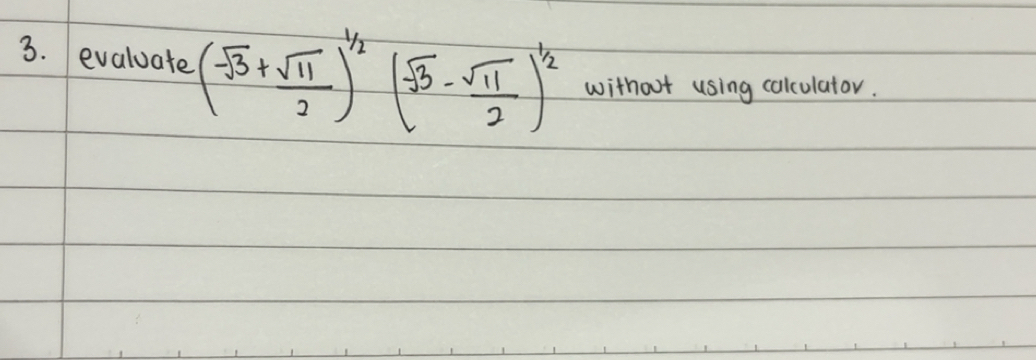 3. evaluate (√3 + √11/2)^1/2 (√3 - √11/2)^1/2 without using calculator.